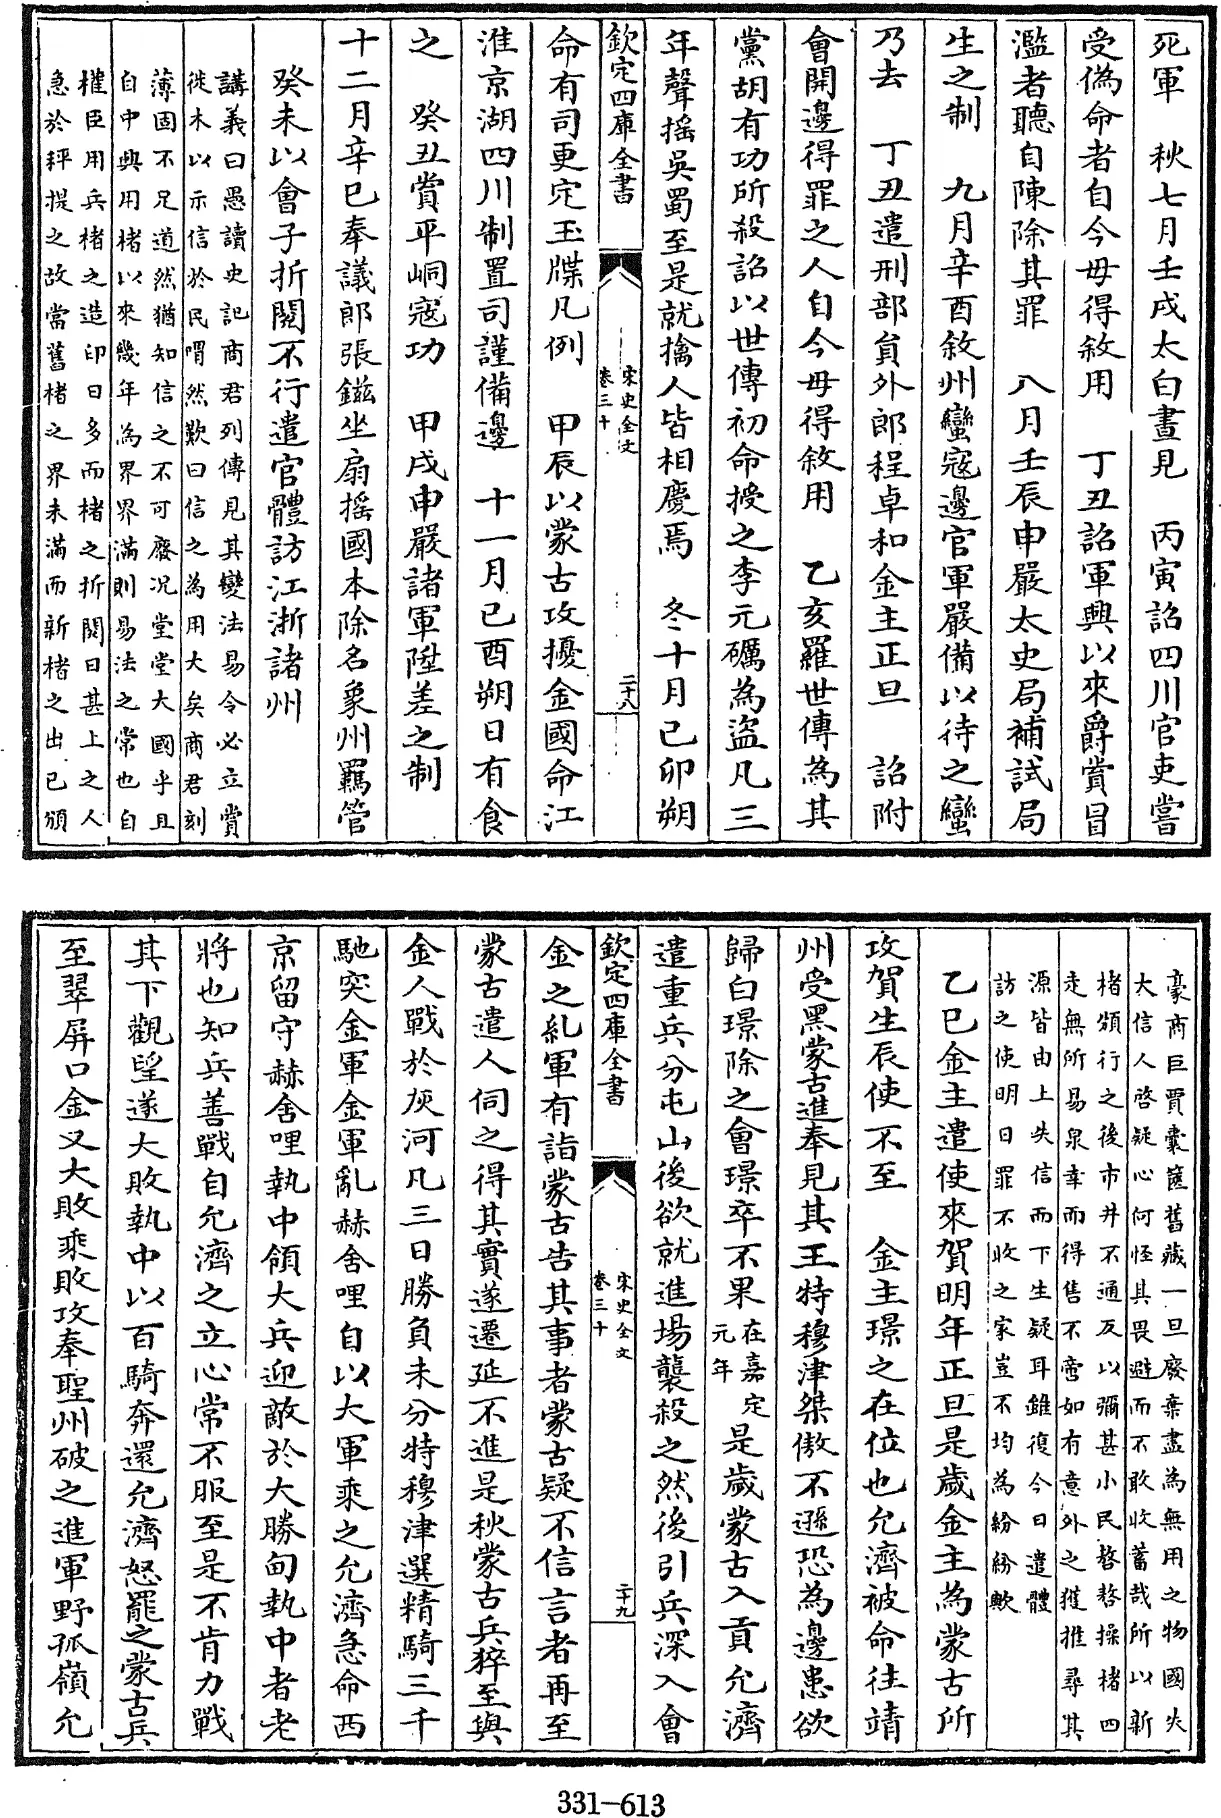 死軍　秋七月壬戌太白晝見　丙寅詔四川官吏嘗
受偽命者自今毋得敘用　丁丑詔軍興以來爵賞冒
濫者聽自陳除其罪　八月壬辰申嚴太史局補試局
生之制　九月辛酉敘州蠻寇邊官軍嚴備以待之蠻
乃去　丁丑遣刑部員外郎程卓和金主正旦　詔附
會開邊得罪之人自今毋得敘用　乙亥羅世傳為其
黨胡有功所殺詔以世傳初命授之李元礪為盜凡三
年聲搖吳蜀至是就擒人皆相慶焉　冬十月己卯朔
欽定四庫全書　宋史全文卷三十　二十八
命有司更定玉牒凡例　甲辰以蒙古攻擾金國命江
淮京湖四川制置司謹備邊　十一月己酉朔日有食
之　癸丑賞平峒寇功　甲戌申嚴諸軍陞差之制
十二月辛巳奉議郎張鎡坐扇搖國本除名象州羈管
癸未以會子折閱不行遣官體訪江浙諸州
講義曰愚讀史記商君列傳見其變法易令必立賞
徙木以示信於民喟然歎曰信之為用大矣商君刻
薄固不足道然猶知信之不可廢况堂堂大國乎且
自中興用楮以來幾年為界界滿則易法之常也自
權臣用兵楮之造印日多而楮之折閱日甚上之人
急於秤提之故當舊楮之界未滿而新楮之出已頒
豪商巨賈囊篋舊藏一旦廢棄盡為無用之物國失
大信人啓疑心何怪其畏避而不敢收蓄哉所以新
楮頒行之後市井不通反以彌甚小民嗸嗸操楮四
走無所易泉幸而得售不啻如有意外之獲推尋其
源皆由上失信而下生疑耳雖復今日遣體
訪之使明日罪不收之家豈不均為紛紛歟
乙巳金主遣使來賀明年正旦是歲金主為蒙古所
攻賀生辰使不至　金主璟之在位也允濟被命往靖
州受黑蒙古進奉見其王特穆津桀傲不遜恐為邊患欲
歸白璟除之會璟卒不果在嘉定元年是歲蒙古入貢允濟
遣重兵分屯山後欲就進場襲殺之然後引兵深入會
欽定四庫全書　宋史全文卷三十　二十九
金之乣軍有詣蒙古告其事者蒙古疑不信言者再至
蒙古遣人伺之得其實遂遷延不進是秋蒙古兵猝至與
金人戰於灰河凡三日勝負未分特穆津選精騎三千
馳突金軍金軍亂赫舍哩自以大軍乘之允濟急命西
京留守赫舍哩執中領大兵迎敵於大勝甸執中者老
將也知兵善戰自允濟之立心常不服至是不肯力戰
其下觀望遂大敗執中以百騎奔還允濟怒罷之蒙古兵
至翠屏口金又大敗乘敗攻奉聖州破之進軍野孤嶺允
331-613